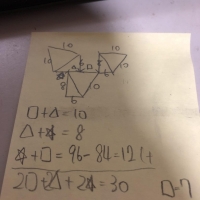 10 10
10
8
6
□+△=10
△+☆=8
☆+□=96-84=12
2□+2△+2☆=30 □=7